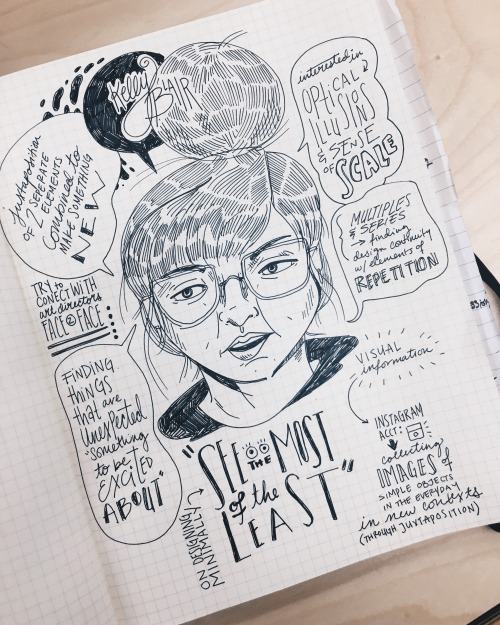 Kelly
BLAIR
juxtaposition
of 2 SEPERATE
ELEMENTS
combined to
MAKE SOMETHING
NEW
interested in
OPTICAL
ILLUSIONS
& SENSE
OF SCALE
MULTIPLES
& SERIES
→ finding
design continuity
w/ elements of
REPETITION
TRY to
CONECT WITH
art directors
FACE 2 FACE
FINDING
things
that are
Unexpected
"Something
to be
EXCITED
ABOUT"
VISUAL
information
INSTAGRAM
ACCT:
collecting
IMAGES of
SIMPLE OBJECTS
IN THE EVERYDAY
in new contexts
(THROUGH JUXTAPOSITION)
"SEE THE MOST
of the
LEAST"
ON DESIGNING
MINIMALLY